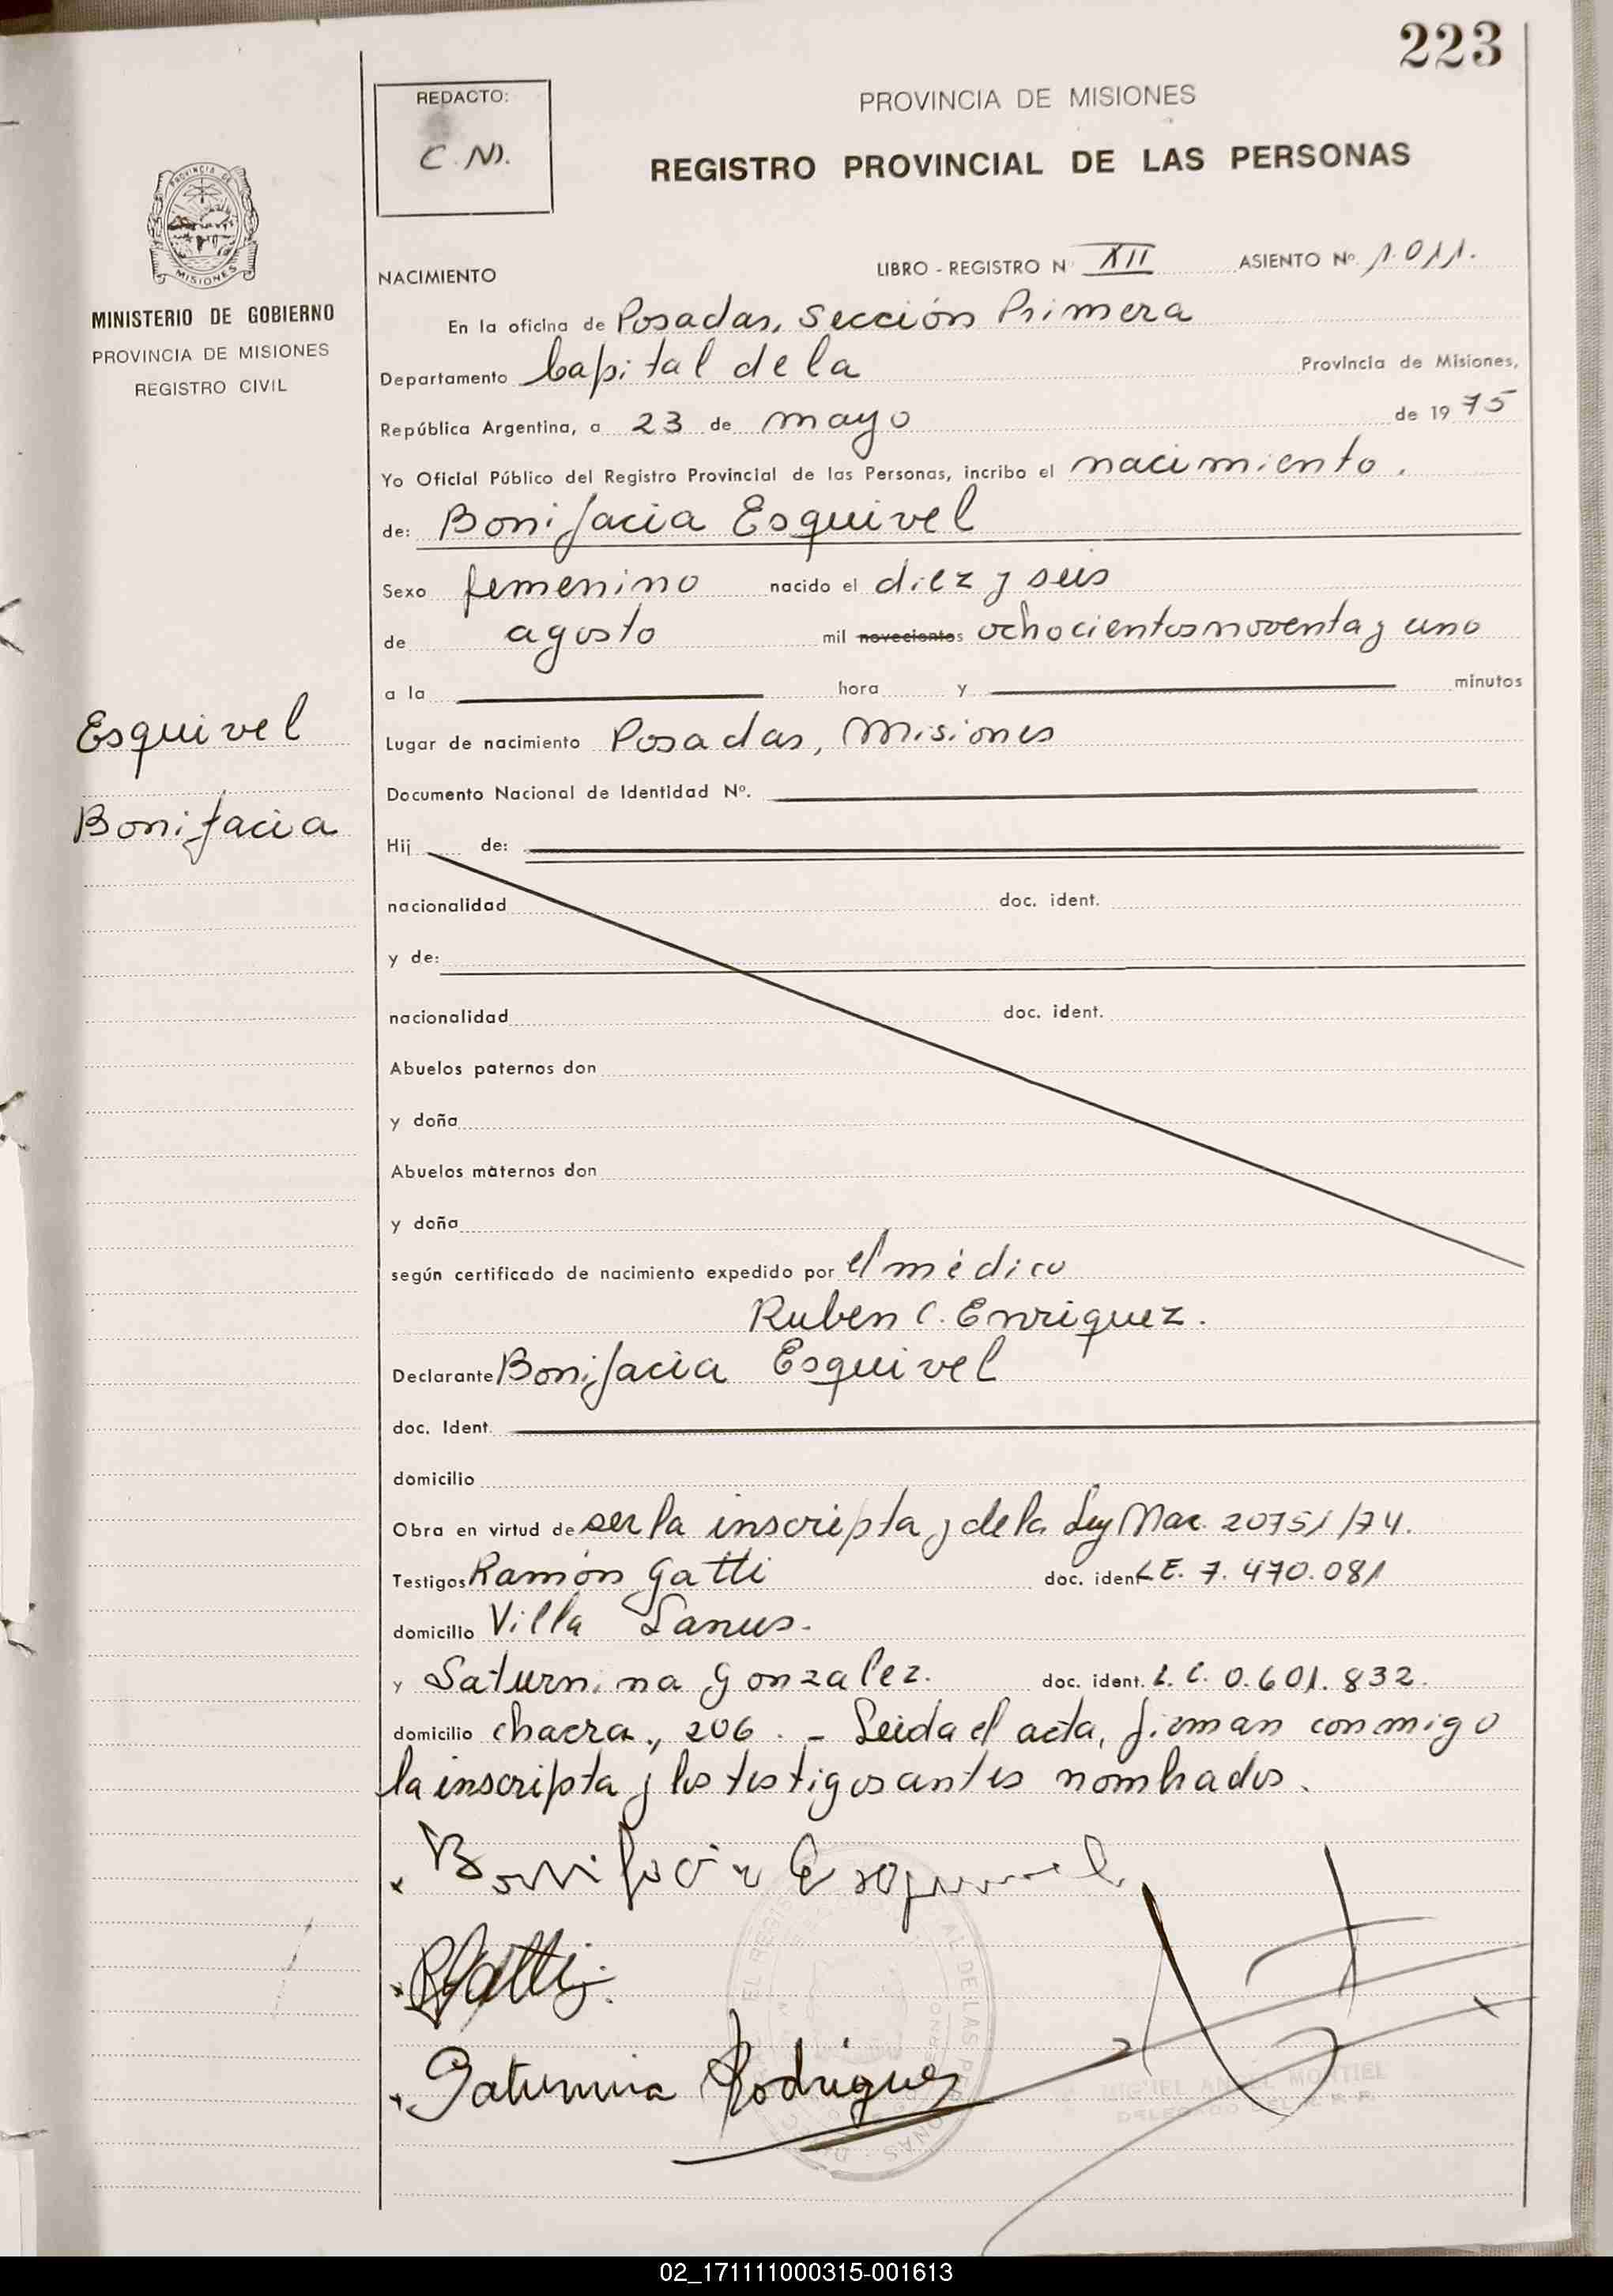 223
REDACTO:
C. N.
PROVINCIA DE MISIONES
REGISTRO PROVINCIAL DE LAS PERSONAS
PROVINCIA DE MISIONES
MINISTERIO DE GOBIERNO
PROVINCIA DE MISIONES
REGISTRO CIVIL
NACIMIENTO LIBRO - REGISTRO N XII ASIENTO Nº 1.011.
En la oficina de Posadas, Sección Primera
Departamento Capital de la Provincia de Misiones,
República Argentina, a 23 de mayo de 19 75
Yo Oficial Público del Registro Provincial de las Personas, incribo el nacimiento.
de: Bonifacia Esquivel
Sexo femenino nacido el diez y seis
de agosto mil novecientos ochocientos noventa y uno
a la hora y minutos
Esquivel
Bonifacia
Lugar de nacimiento Posadas, Misiones
Documento Nacional de Identidad Nº.
Hij de:
nacionalidad doc. ident.
y de:
nacionalidad doc. ident.
Abuelos paternos don
y doña
Abuelos maternos don
y doña
según certificado de nacimiento expedido por el médico
Ruben C. Enriquez.
Declarante Bonifacia Esquivel
doc. Ident.
domicilio
Obra en virtud de ser la inscripta y de la Ley Nac. 20751/74.
Testigos Ramón Gatti doc. ident L.E. 7.470.081
domicilio Villa Lanus.
y Saturnina Gonzalez. doc. ident. L.C. 0.601.832.
domicilio chacra, 206. - Leida el acta, firman conmigo
la inscripta y los testigos antes nombrados.
Bonifacia Esquivel
RGatti
Saturnina Rodriguez
MIGUEL ANGEL MONTIEL
02_171111000315-001613